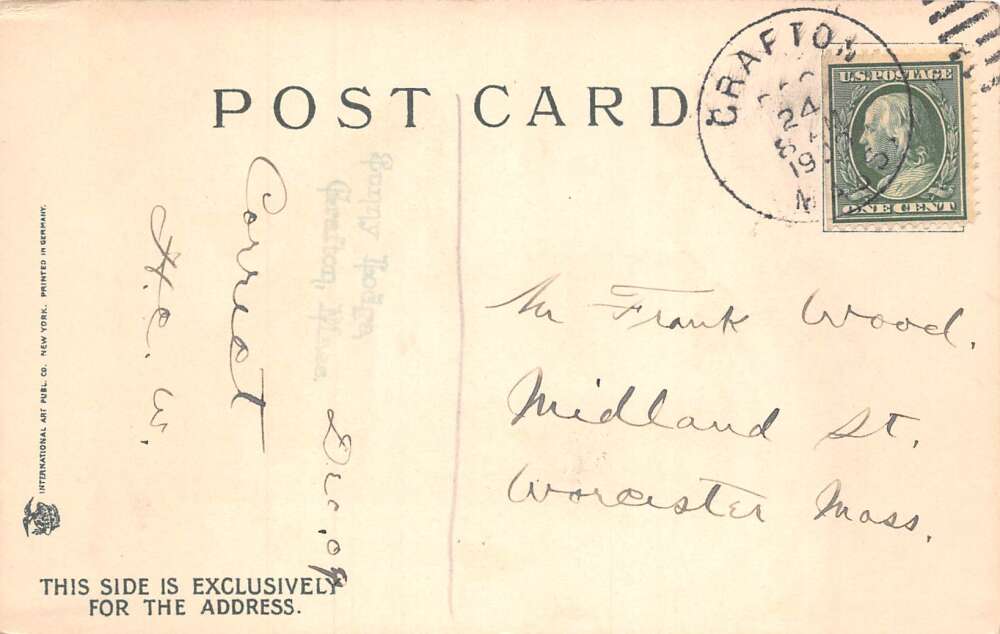 POST CARD
GRAFTON
24
8 AM
19
MASS.
U.S. POSTAGE
ONE CENT
Mr Frank Wood.
Midland St.
Worcester Mass.
Correct
H. C. W.
Dec. 09
Grafton, Mass.
INTERNATIONAL ART PUBL. CO. NEW YORK. PRINTED IN GERMANY.
THIS SIDE IS EXCLUSIVELY
FOR THE ADDRESS.